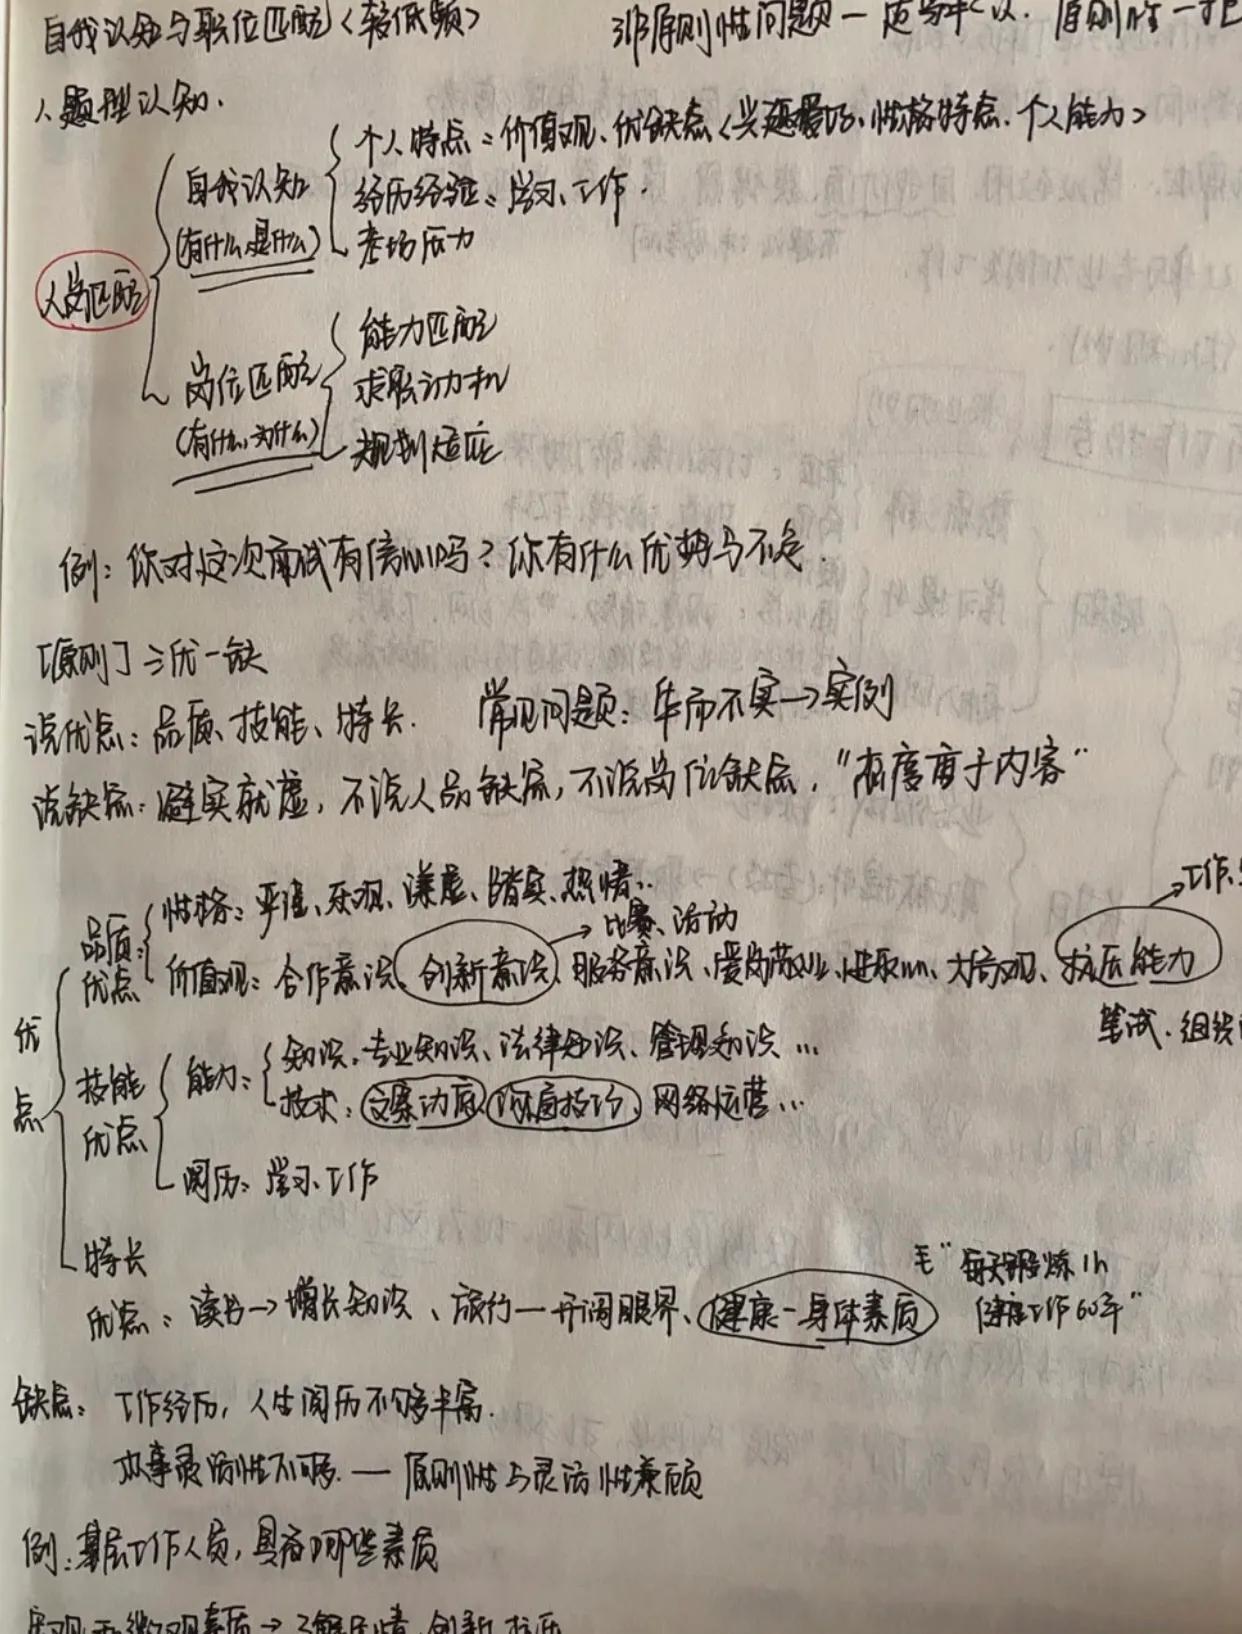 自我认知与职位匹配<较低频>
非原则性问题一 原则性一
1、题型认知.
个人特点：价值观、优缺点<兴趣爱好、性格特点、个人能力>
自我认知
经历经验：学习、工作.
(有什么,是什么)
考场压力
人岗匹配
能力匹配
岗位匹配
求职动机
(有什么,为什么)
规划适应
例：你对这次面试有信心吗？你有什么优势与不足.
[原则] 三优一缺
说优点：品质、技能、特长. 常见问题：华而不实→实例
说缺点：避实就虚，不说人品缺点，不说岗位缺点，"态度重于内容"
→工作、
性格：严谨、乐观、谦虚、踏实、热情..
→比赛、活动
品质：
优点
价值观：合作意识、创新意识、服务意识、爱岗敬业、进取心、大局观、抗压能力
笔试、组织
优点
知识：专业知识、法律知识、管理知识...
技能
优点
能力：
技术：文案功底、沟通技巧、网络运营...
阅历：学习、工作
特长
优点：读书→增长知识、旅行一开阔眼界、健康一身体素质
毛"每天锻炼1h
健康工作60年"
缺点：工作经历，人生阅历不够丰富.
办事灵活性不够.——原则性与灵活性兼顾
例：基层工作人员，具备哪些素质
宏观和微观素质→了解民情、创新、抗压